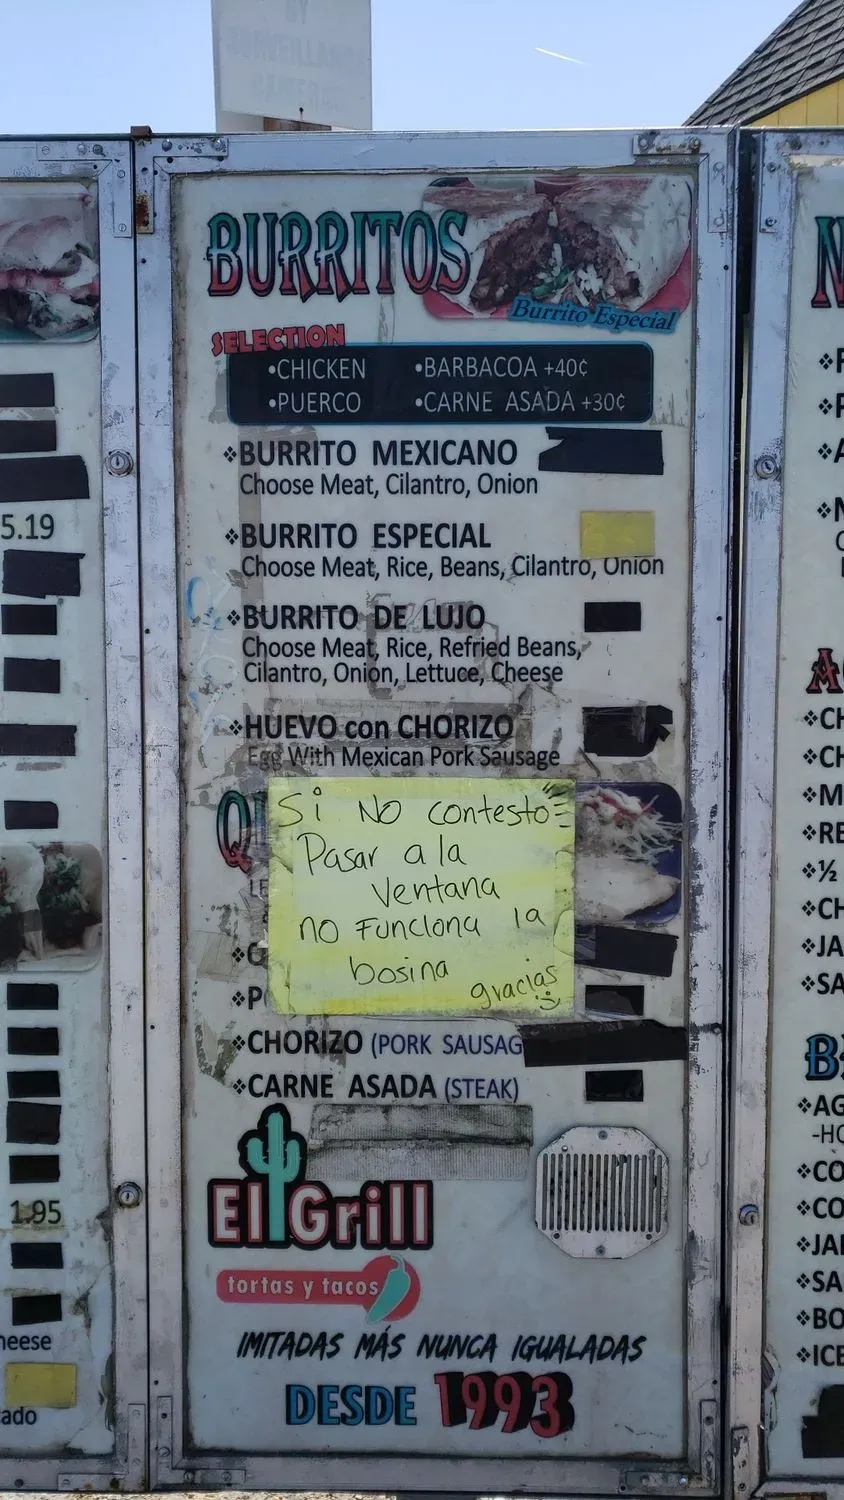 BY
SURVEILLANCE
CAMERAS
BURRITOS
Burrito Especial
SELECTION
•CHICKEN •BARBACOA +40¢
•PUERCO •CARNE ASADA +30¢
❖BURRITO MEXICANO
Choose Meat, Cilantro, Onion
❖BURRITO ESPECIAL
Choose Meat, Rice, Beans, Cilantro, Onion
❖BURRITO DE LUJO
Choose Meat, Rice, Refried Beans,
Cilantro, Onion, Lettuce, Cheese
❖HUEVO con CHORIZO
Egg With Mexican Pork Sausage
Si No contesto
Pasar a la
ventana
no Funciona la
bosina
gracias
❖CHORIZO (PORK SAUSAG
❖CARNE ASADA (STEAK)
El Grill
tortas y tacos
IMITADAS MÁS NUNCA IGUALADAS
DESDE 1993
5.19
1.95